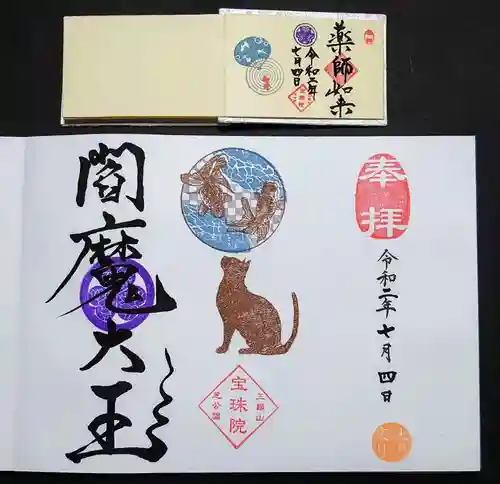 薬師如来
令和二年
七月四日
宝珠院
奉拝
令和二年七月四日
閻魔大王
三縁山
宝珠院
芝公園